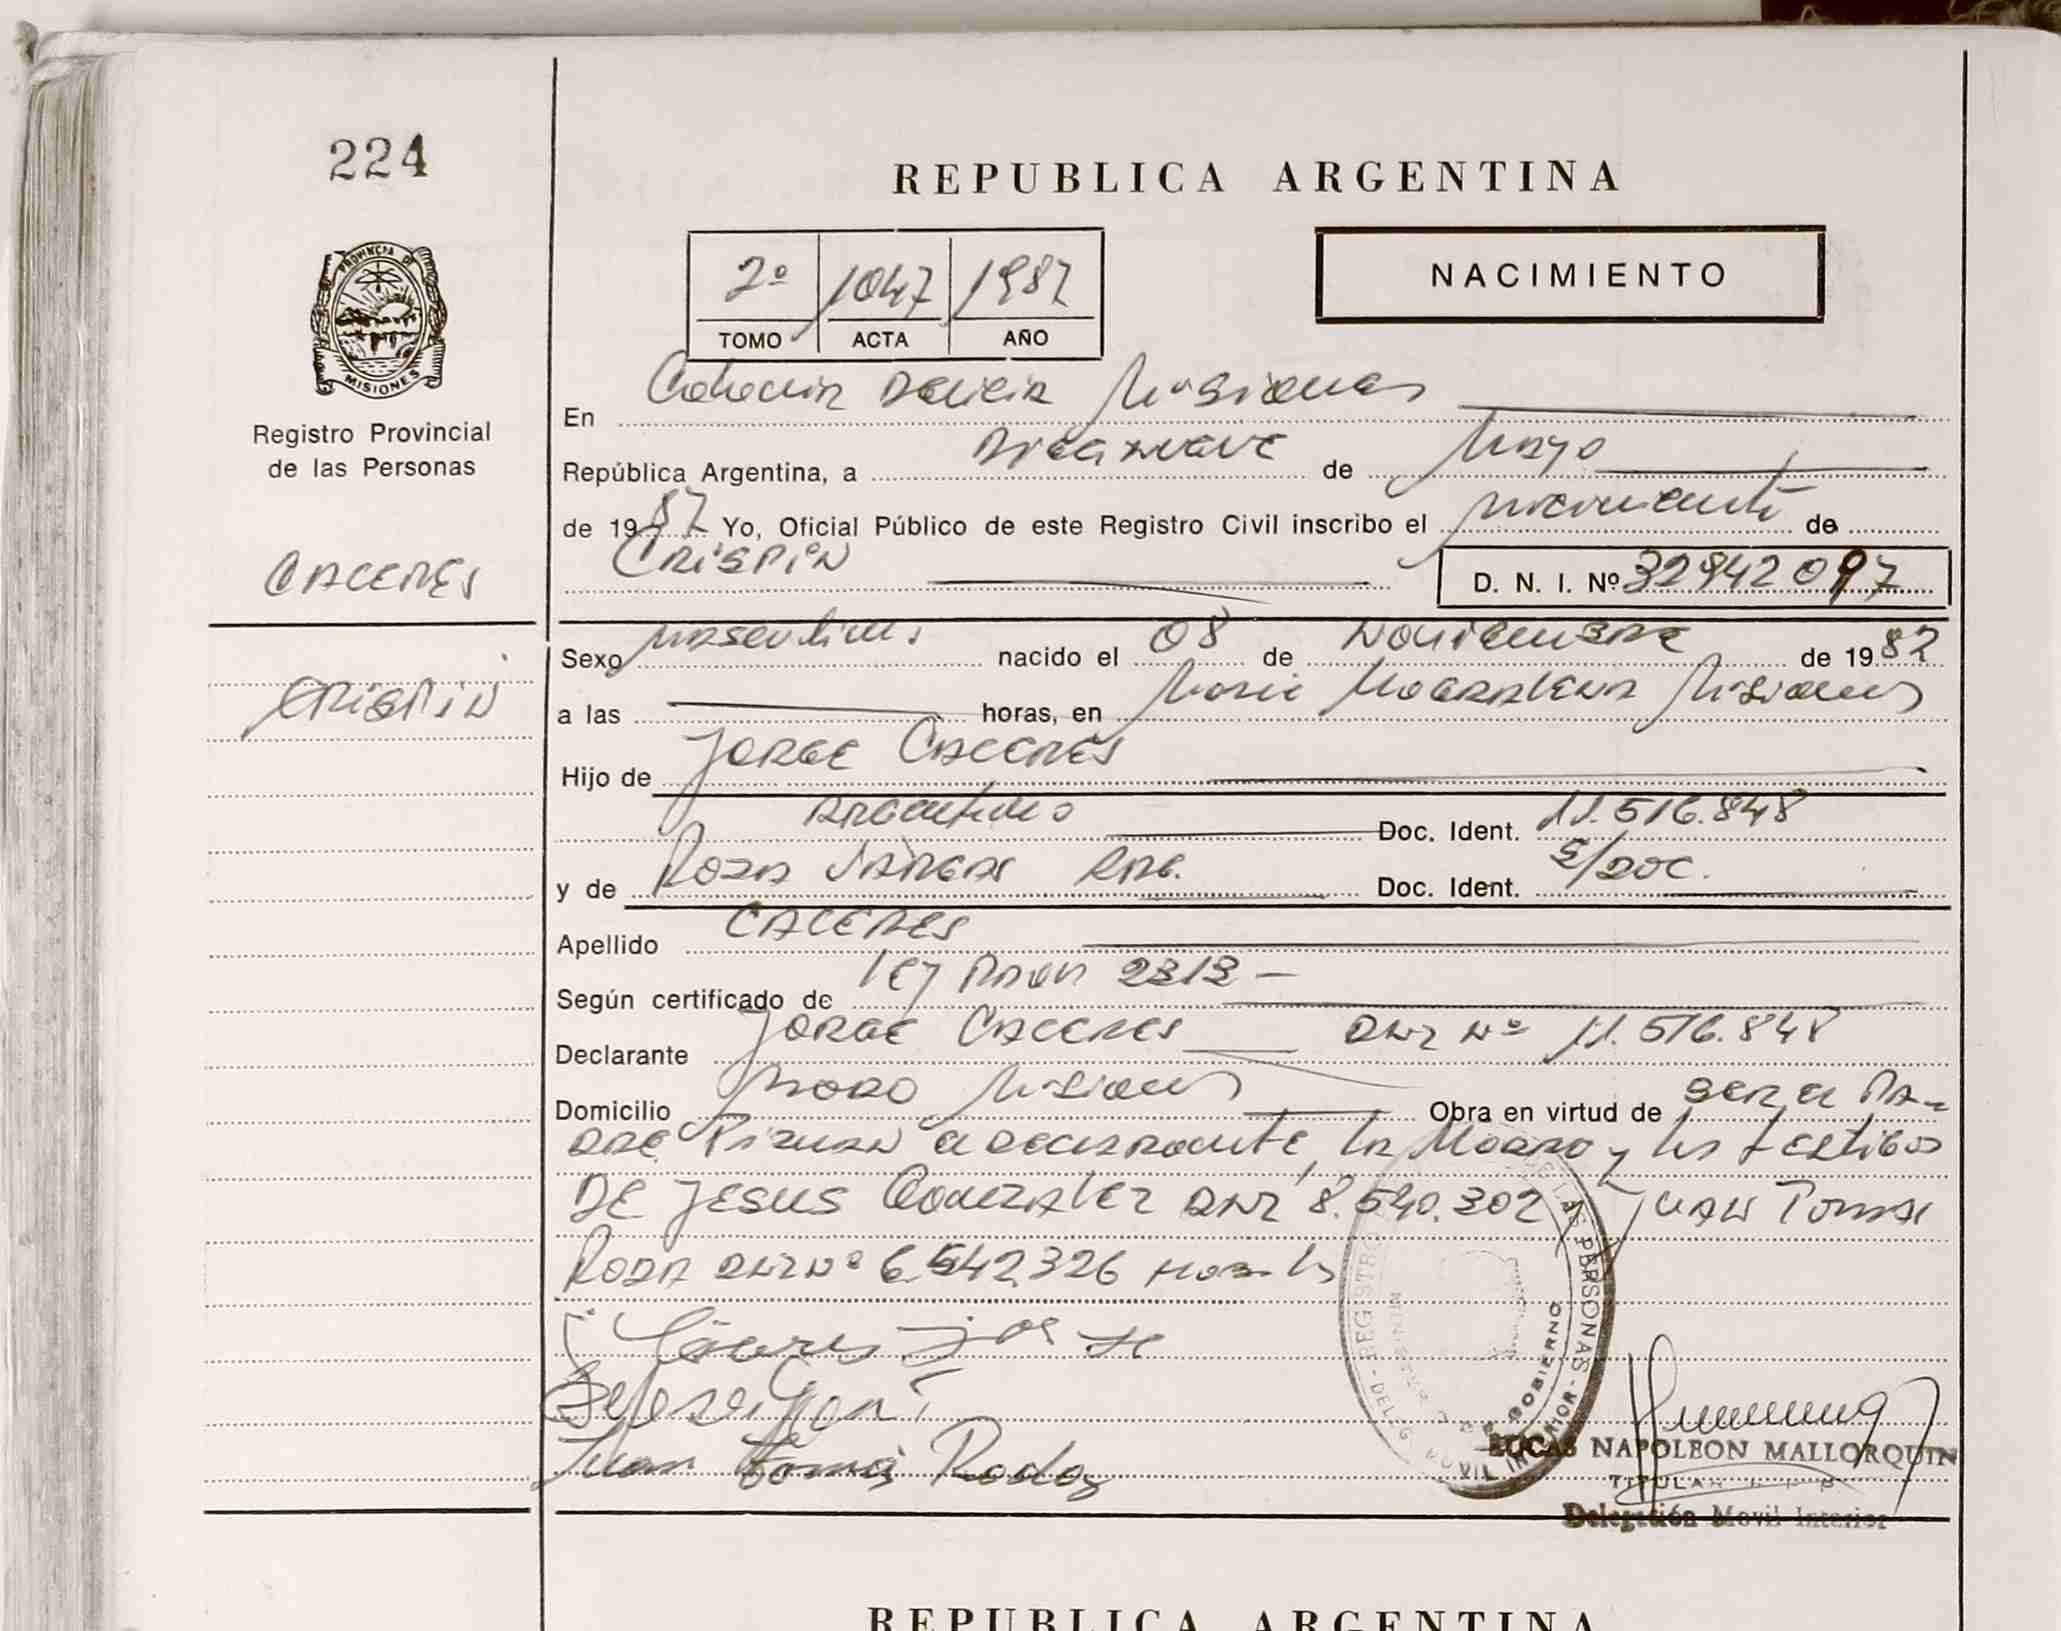 224
REPUBLICA ARGENTINA
PROVINCIA DE
MISIONES
Registro Provincial
de las Personas
2º 1047 1987
TOMO ACTA AÑO
NACIMIENTO
En Colonia Delicia Misiones
República Argentina, a Diecinueve de Mayo
de 1987 Yo, Oficial Público de este Registro Civil inscribo el nacimiento de
CACERES
CRISPIN D. N. I. Nº 32942097
CRISPIN
Sexo masculino nacido el 08 de Noviembre de 1982
a las horas, en Maria Magdalena Misiones
Hijo de JORGE CACERES
Argentino Doc. Ident. 11.516.848
y de Rosa Vargas Doc. Ident. S/Doc.
Apellido CACERES
Según certificado de Ley 2313
Declarante JORGE CACERES DNI Nº 11.516.848
Domicilio Misiones Obra en virtud de ser el Pa-
dre Firman el declarante, la Madre y los testigos
DE JESUS Gonzalez DNI 8.540.302 Juan Tomas
DNI Nº 6.542.326
Caceres Jorge
Juan Tomas Rodas
REGISTRO DE LAS PERSONAS
GOBIERNO
LUCAS NAPOLEON MALLORQUIN
TITULAR
Delegación Movil Interior
REPUBLICA ARGENTINA